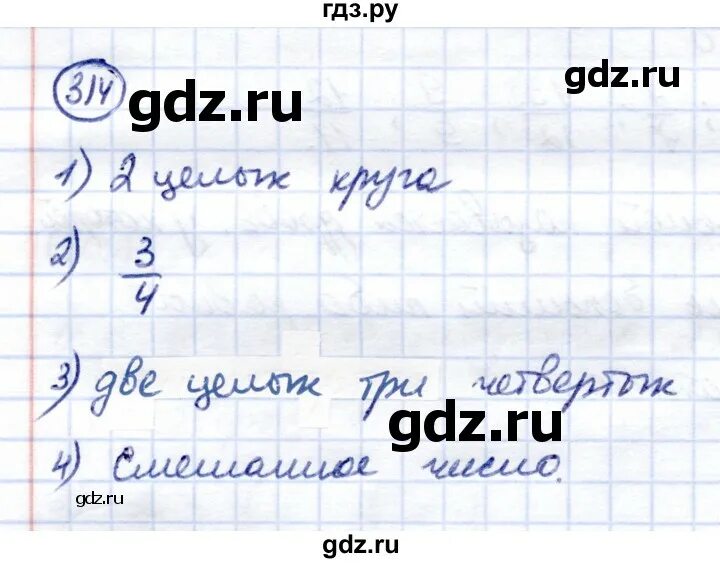 гдз.ру
314
gdz.ru
gdz.ru
1) 2 целых круга
2) 3/4
3) две целых три четвертых
gdz.ru
4) Смешанное число.
gdz.ru
gdz.ru